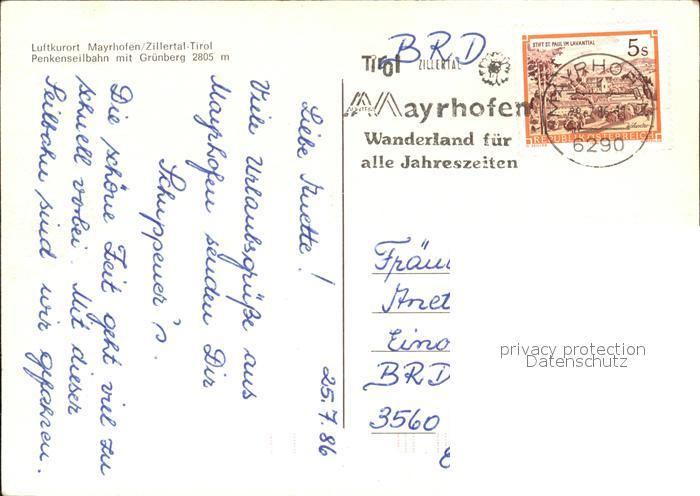 Luftkurort Mayrhofen/Zillertal-Tirol
Penkenseilbahn mit Grünberg 2805 m
25.7.86
Liebe Anette!
Viele Urlaubsgrüße aus
Mayrhofen senden Dir
Schuppener's.
Die schöne Zeit geht viel zu
schnell vorbei. Mit dieser
Seilbahn sind wir gefahren.
BRD
Tirol ZILLERTAL
Mayrhofen
Wanderland für
alle Jahreszeiten
STIFT ST. PAUL IM LAVANTTAL
5s
REPUBLIK ÖSTERREICH
MAYRHOFEN
6290
Fräu
Anet
Eino
BRD
3560
privacy protection
Datenschutz